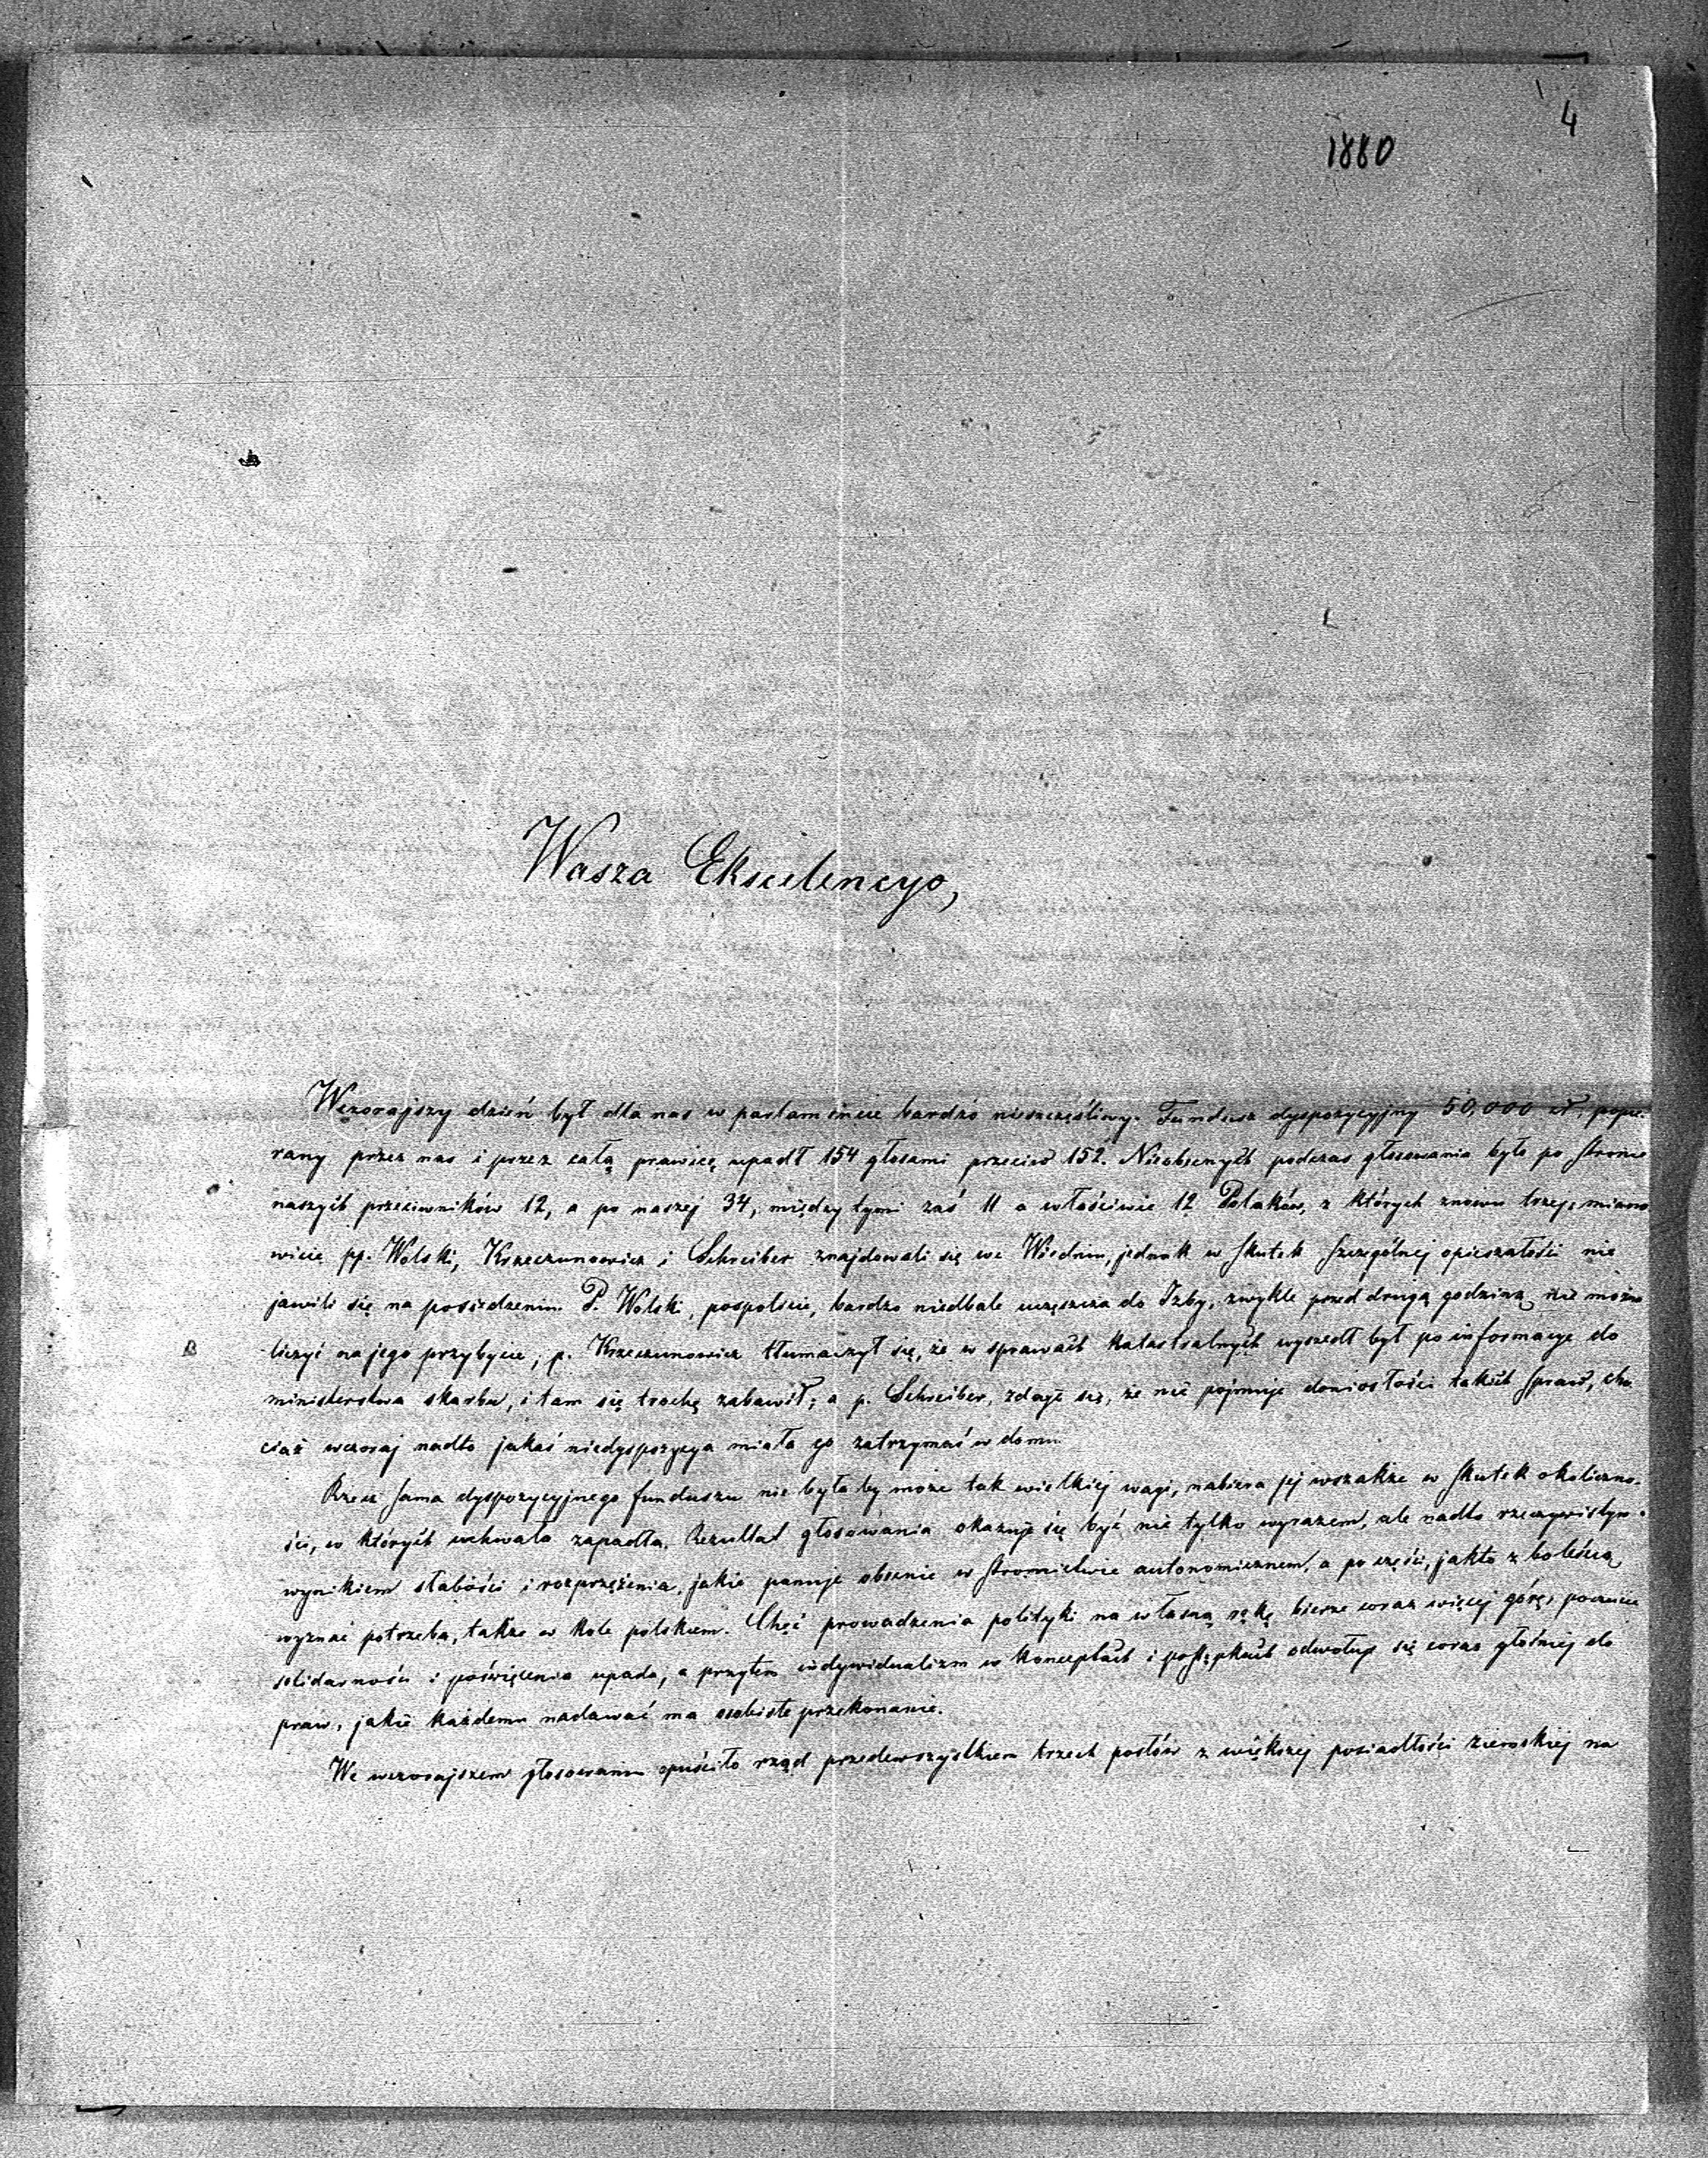 4
1880
Wasza Ekscelencyo,
Wczorajszy dzień był dla nas w parlamencie bardzo nieszczęśliwy. Fundusz dyspozycyjny 50,000 zł, popie-
rany przez nas i przez całą prawicę upadł 154 głosami przeciw 152. Nieobecnych podczas głosowania było po stronie
naszych przeciwników 12, a po naszej 34, między tymi zaś 11 a właściwie 12 Polaków, z których znowu trzej, miano
wicie pp. Wolski, Krzeczunowicz i Schreiber znajdowali się we Wiedniu, jednak w skutek szczególnej opieszałości nie
jawili się na posiedzeniu. P. Wolski, pospolicie, bardzo niedbale uczęszcza do Izby, zwykle przed drugą godziną nie można
liczyć na jego przybycie; p. Krzeczunowicz tłumaczył się, że w sprawach katastralnych wyszedł był po informacye do
ministerstwa skarbu, i tam się trochę zabawił; a p. Schreiber, zdaje się, że nie pojmuje doniosłości takich spraw, cho
ciaż wczoraj nadto jakaś niedyspozycya miała go zatrzymać w domu.
Rzecz sama dyspozycyjnego funduszu nie była by może tak wielkiej wagi, nabiera jej wszakże w skutek okoliczno-
ści, w których uchwała zapadła. Rezultat głosowania okazuje się być nie tylko wyrazem, ale nadto rzeczywistym
wynikiem słabości i rozprzężenia, jakie panuje obecnie w stronnictwie autonomicznem, a po części, jakto z boleścią
wyznać potrzeba, także w kole polskiem. Chęć prowadzenia polityki na własną rękę bierze coraz więcej górę, poczucie
solidarności i poświęcenia upada, a przytem indywidualizm w konceptach i postępkach odwołuje się coraz głośniej do
praw, jakie każdemu nadawać ma osobiste przekonanie.
We wczorajszem głosowaniu opuściło rząd przedewszystkiem trzech posłów z większej posiadłości ziemskiej na